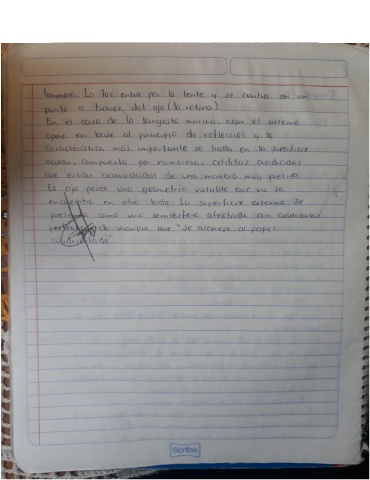 humano. La luz entra por la lente y se centra en un
punto a travez del ojo (la retina).
En el caso de la langosta marina, aqui el sistema
opera en base al principio de reflección y la
caracteristica mas importante se halla en la superficie
ocular, compuesta por numerosas celdillas cuadradas
que estan acomodadas de una manera muy precisa.
El ojo posee una geometria notable que no se
encuentra en otro lado. La superficie externa se
como una semiesfera afectada con cuadrados
de manera que "se asemeje al papel
cuadriculado"
Scribe